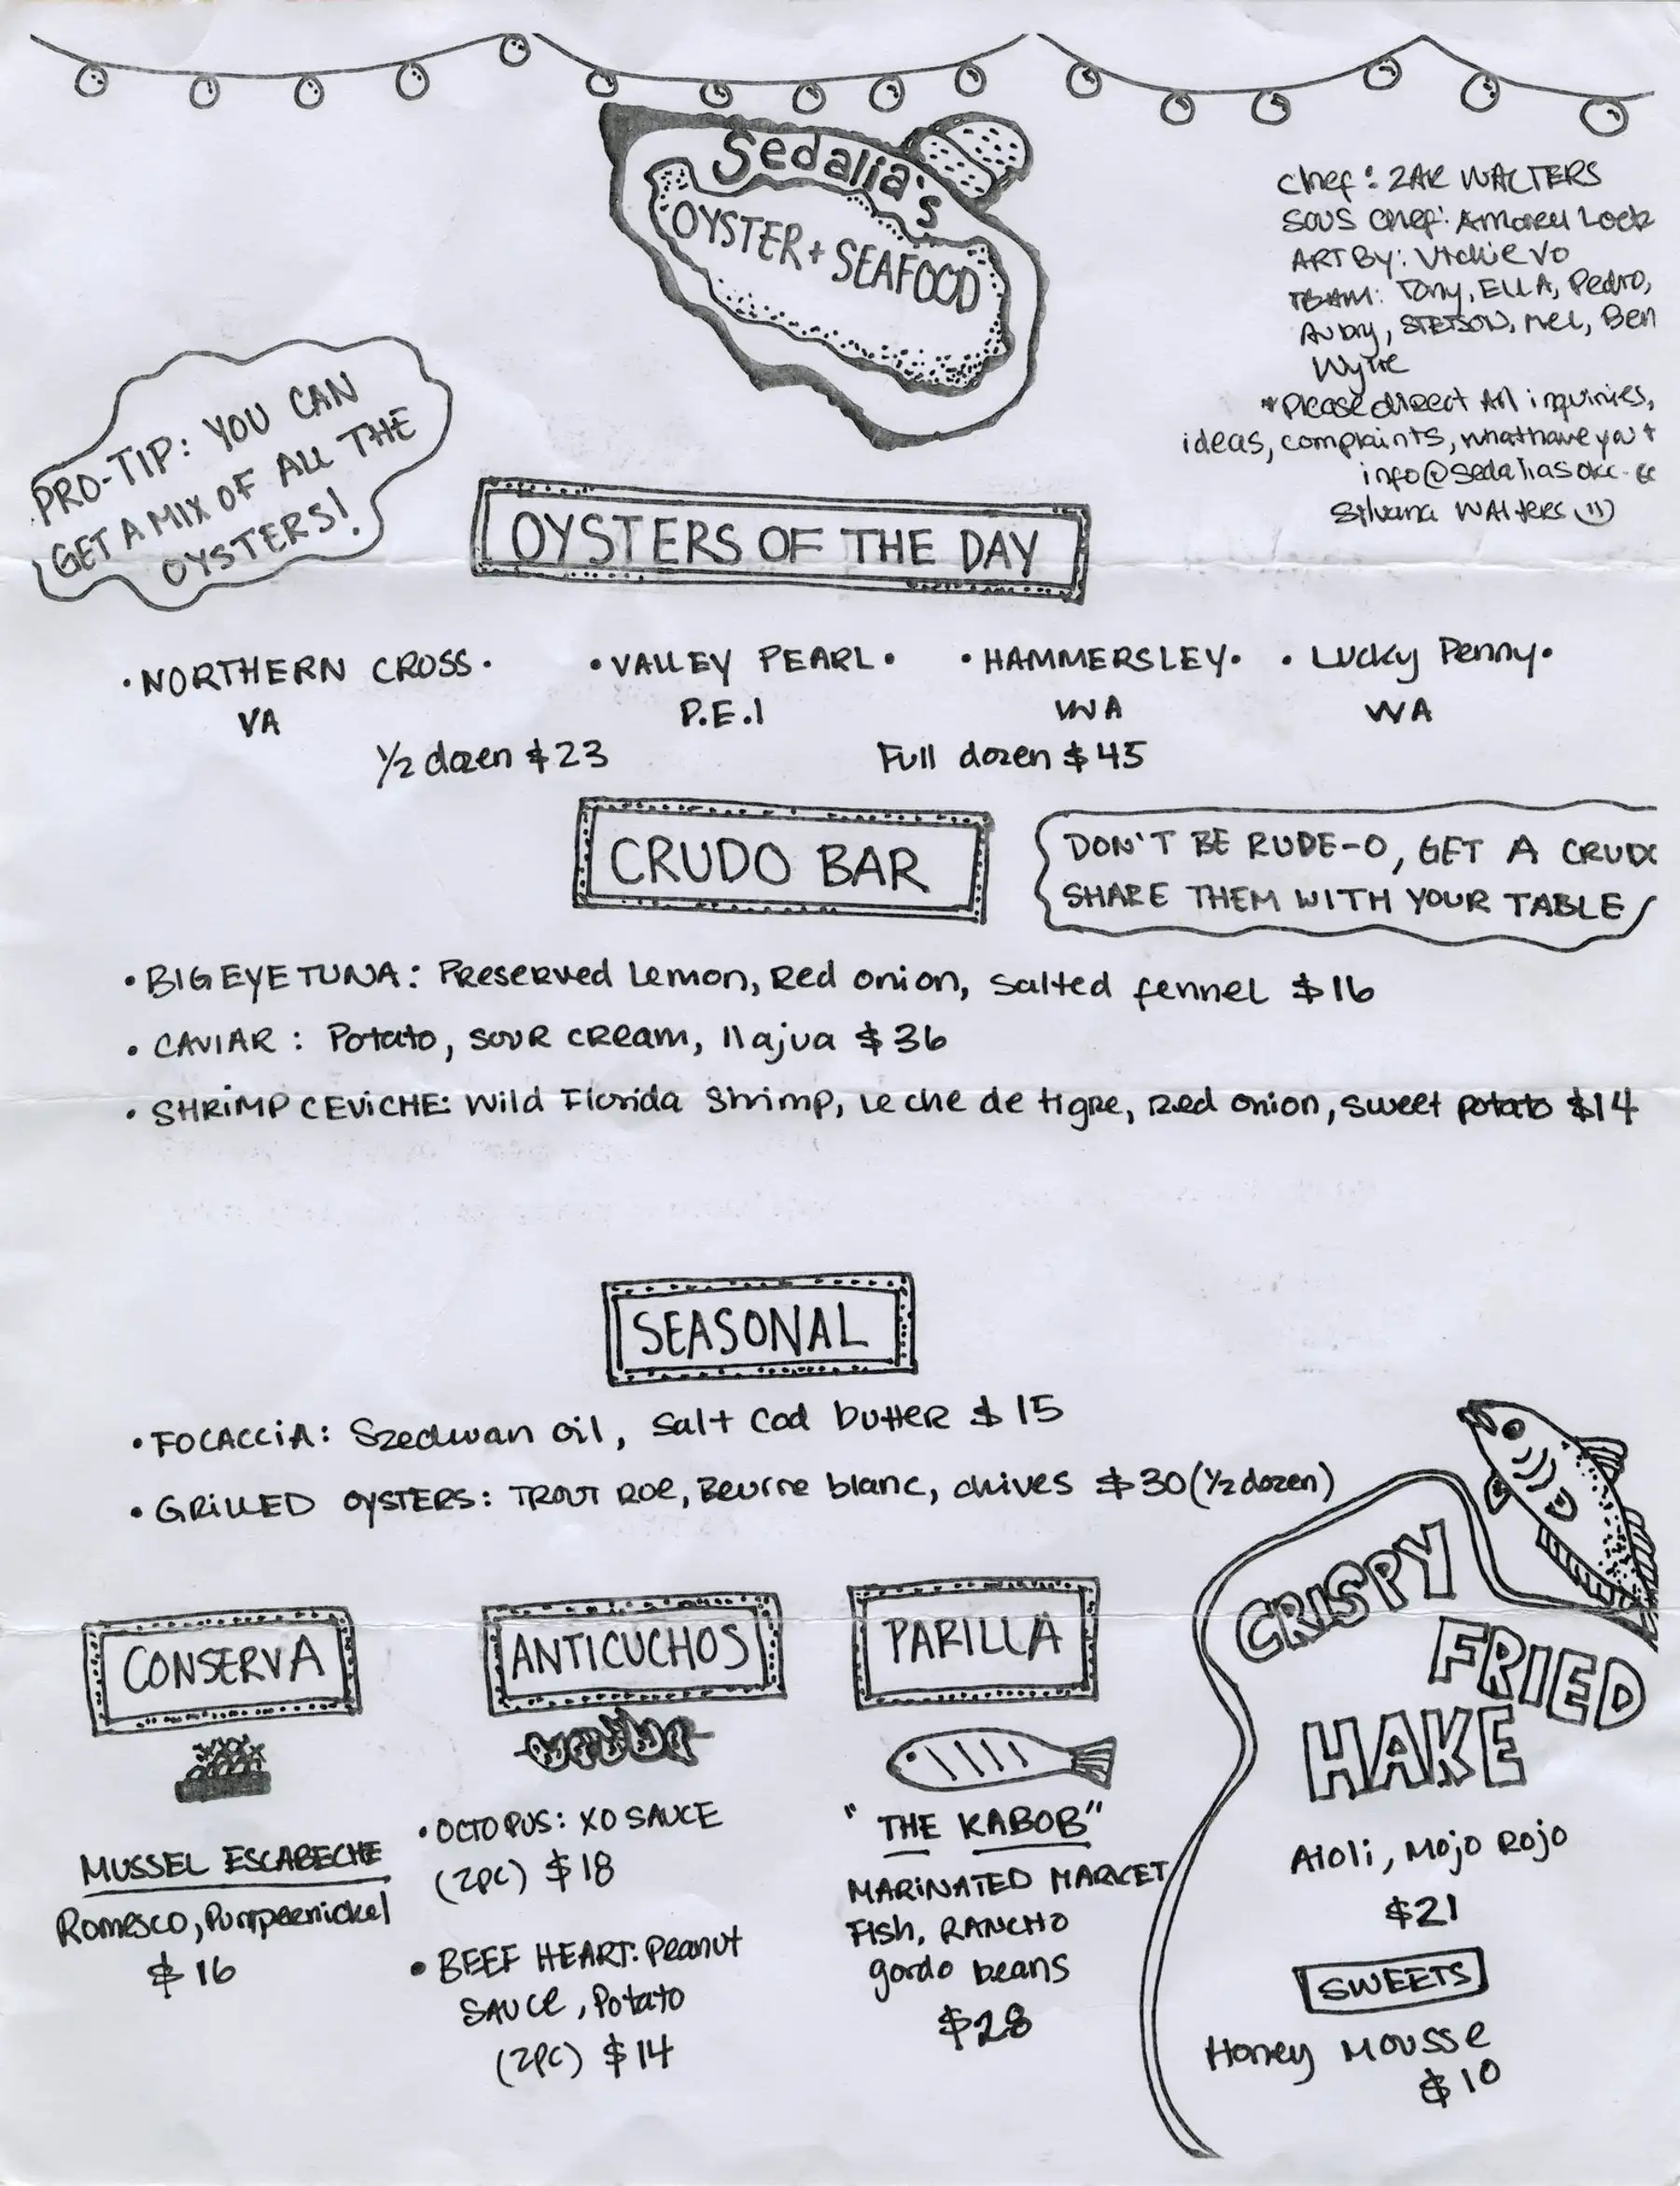 Sedalia's
OYSTER + SEAFOOD
Chef: ZAK WALTERS
SOUS Chef: Amareu Lock
ART BY: Vickie Vo
TEAM: Tony, ELLA, Pedro,
Aubry, STETSON, Mel, Ben
*Please direct All inquiries,
ideas, complaints, whathaveyou t
info@sedaliasokc.
Silvana WAlters
PRO-TIP: YOU CAN
GET A MIX OF ALL THE
OYSTERS!
OYSTERS OF THE DAY
• NORTHERN CROSS •
VA
• VALLEY PEARL •
P.E.I
• HAMMERSLEY •
WA
• Lucky Penny •
WA
1/2 dozen $23
Full dozen $45
CRUDO BAR
DON'T BE RUDE-O, GET A CRUDO
SHARE THEM WITH YOUR TABLE
• BIGEYE TUNA: Preserved Lemon, Red onion, Salted fennel $16
• CAVIAR: Potato, sour cream, llajua $36
• SHRIMP CEVICHE: Wild Florida Shrimp, Leche de tigre, Red onion, sweet potato $14
SEASONAL
• FOCACCIA: Szechuan oil, Salt Cod butter $15
• GRILLED OYSTERS: TROUT ROE, Beurre blanc, chives $30 (1/2 dozen)
CONSERVA
MUSSEL ESCABECHE
Romesco, Pumpernickel
$16
ANTICUCHOS
• OCTOPUS: XO SAUCE
(2pc) $18
• BEEF HEART: Peanut
SAUCE, Potato
(2pc) $14
PARILLA
"THE KABOB"
MARINATED MARKET
Fish, RANCHO
gordo beans
$28
CRISPY
FRIED
HAKE
Aioli, Mojo Rojo
$21
SWEETS
Honey Mousse
$10